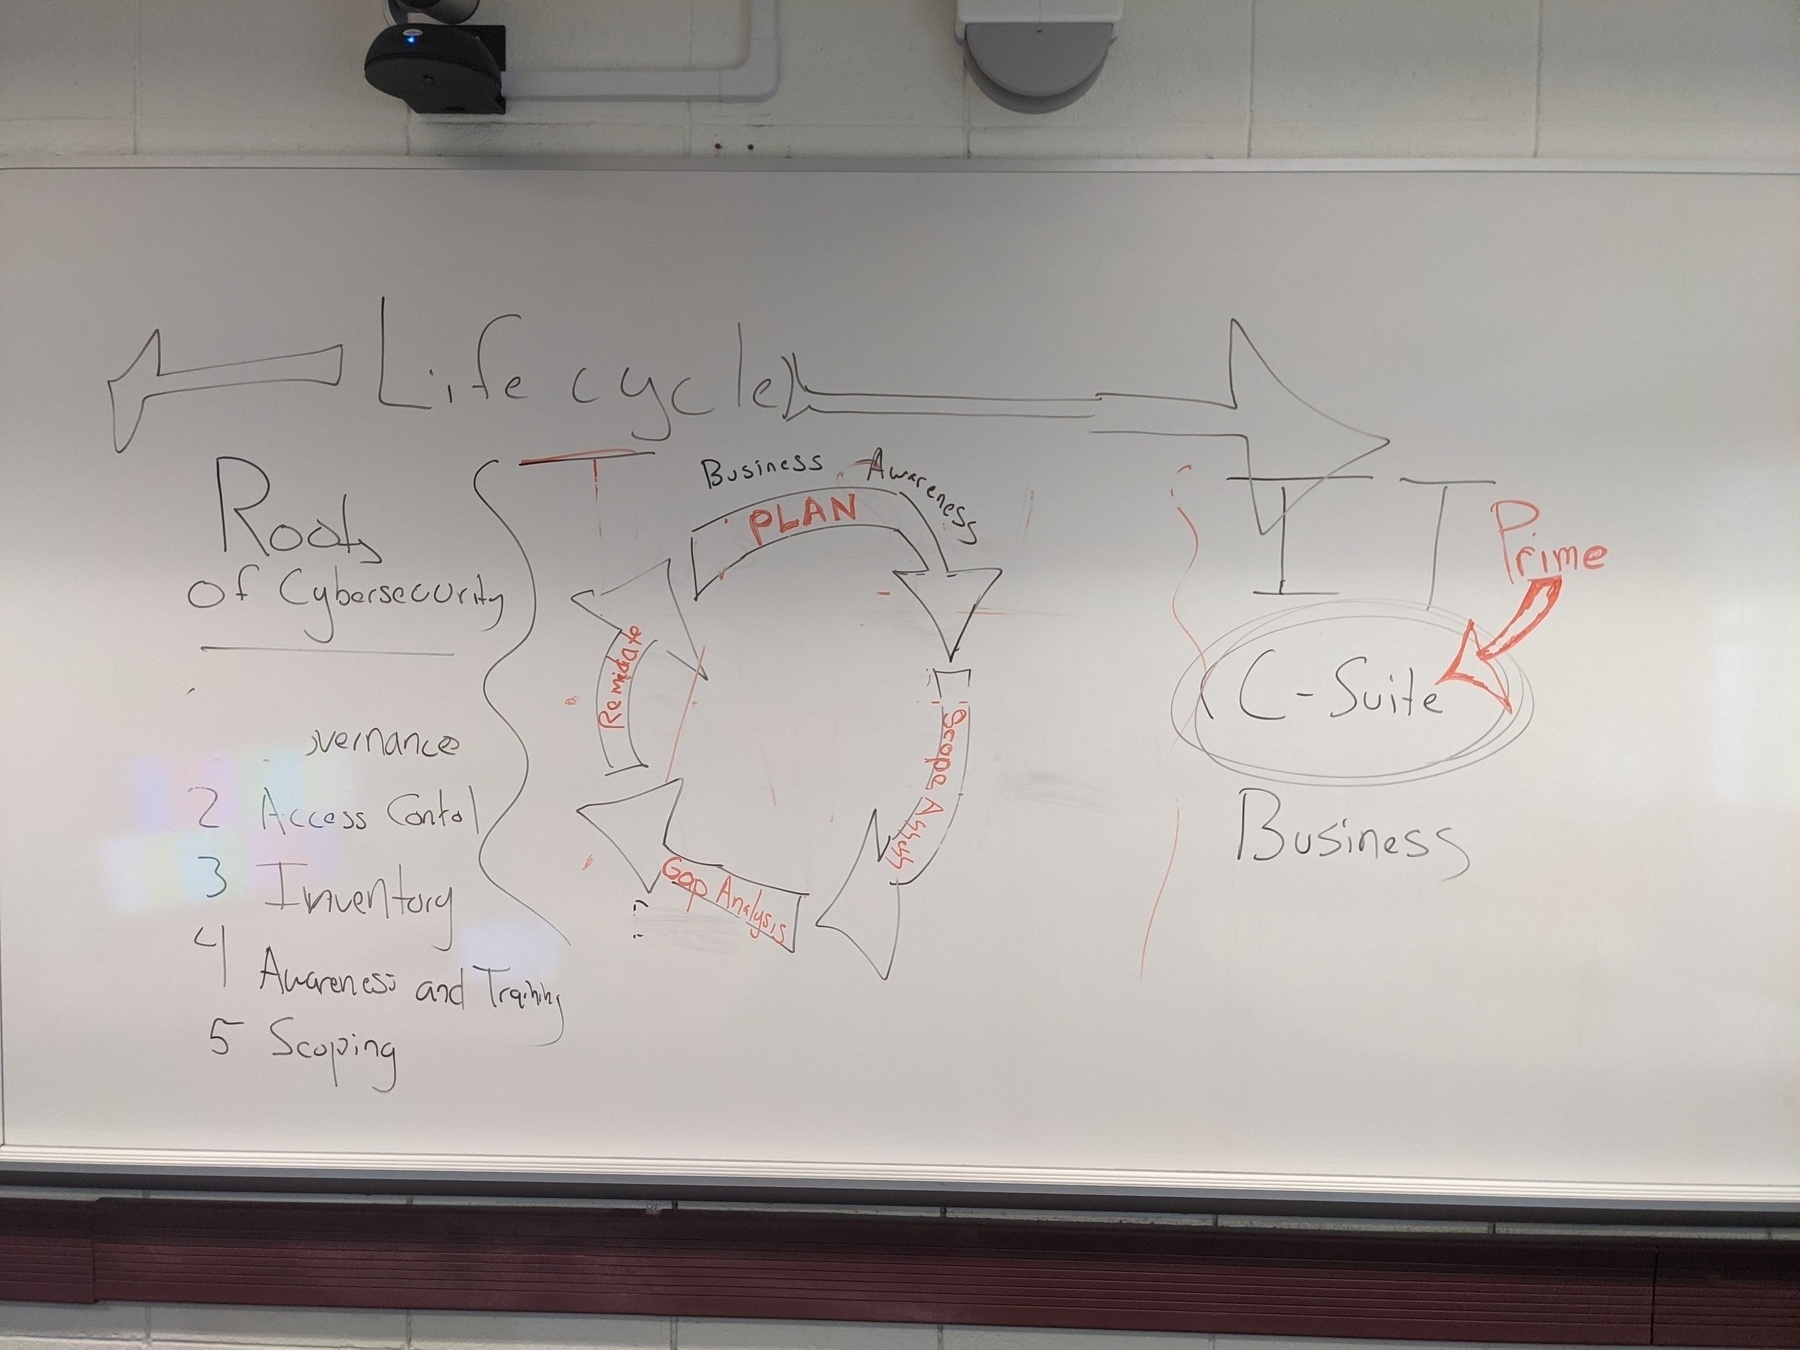 Lifecycle
Roots
of Cybersecurity
vernance
2 Access Contol
3 Inventory
4 Awareness and Training
5 Scoping
Business Awareness
PLAN
Scope Assess
Gap Analysis
Remidate
IT
Prime
C-Suite
Business